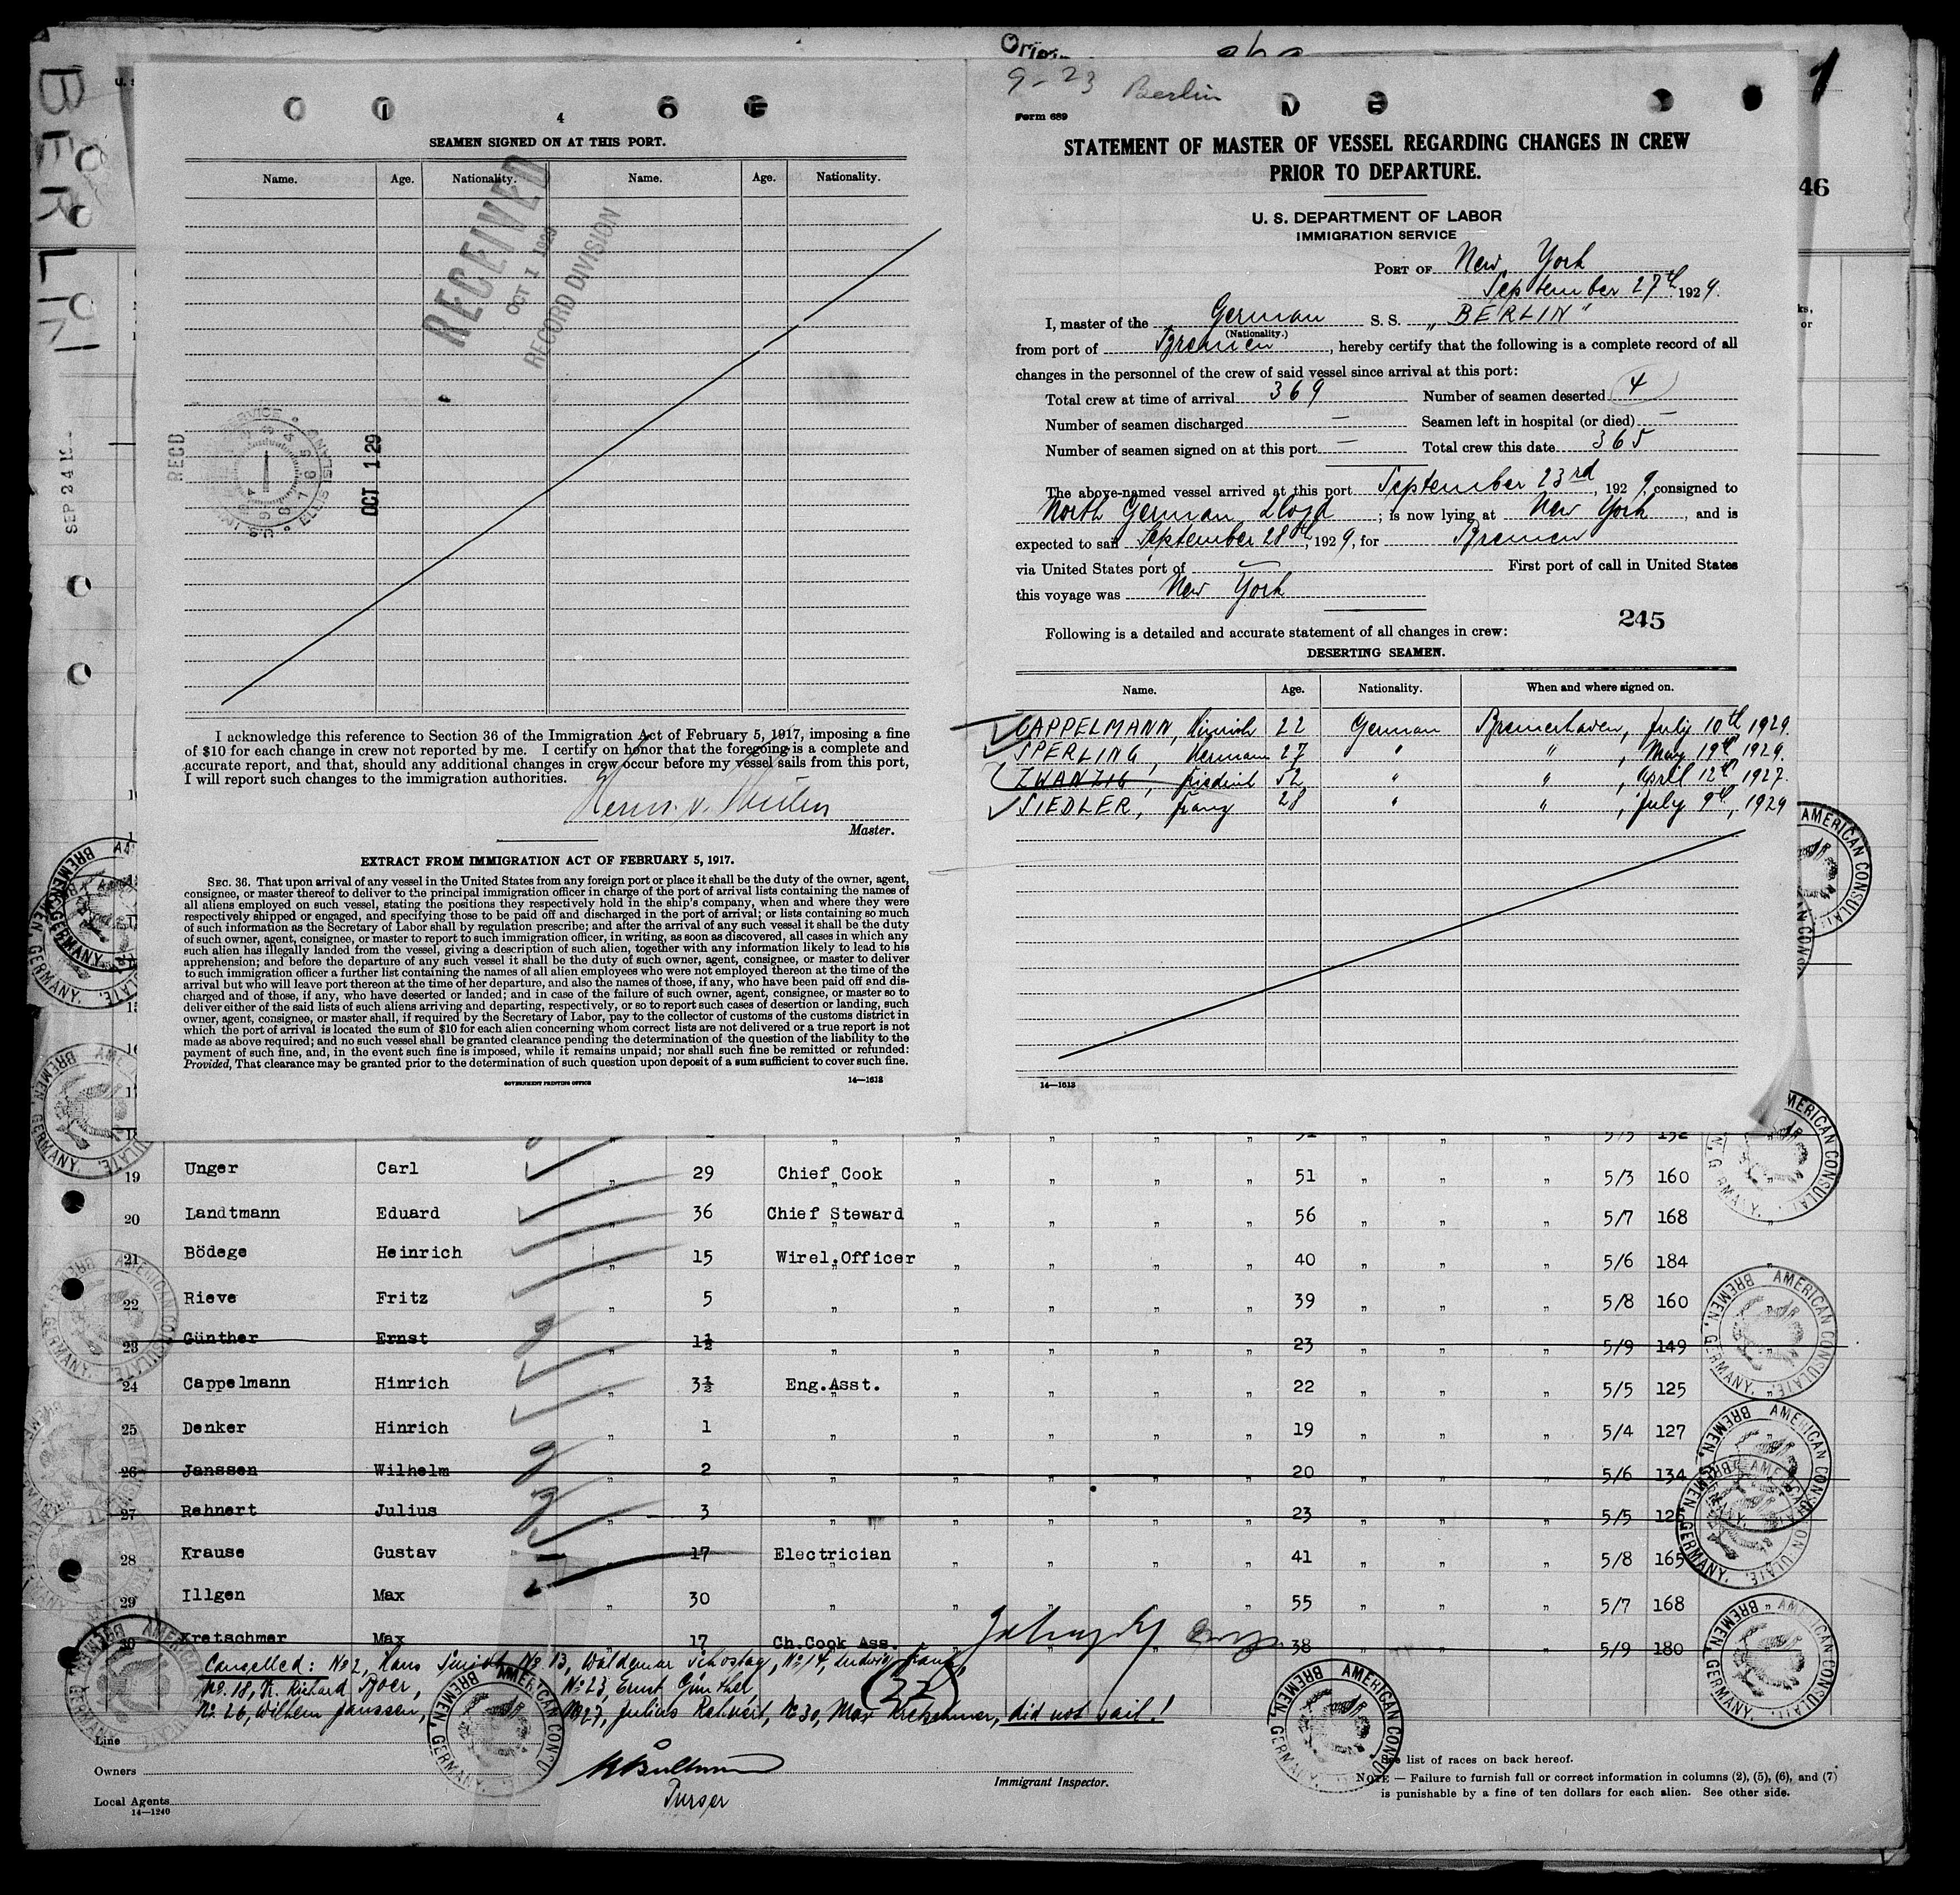 BERLIN
Origi
9-23 Berlin
1
46
4
SEAMEN SIGNED ON AT THIS PORT.
Name. Age. Nationality. Name. Age. Nationality.
RECEIVED
OCT 1 1929
RECORD DIVISION
RECD
OCT 1 29
ELLIS ISLAND
SEP 24 19
I acknowledge this reference to Section 36 of the Immigration Act of February 5, 1917, imposing a fine
of $10 for each change in crew not reported by me. I certify on honor that the foregoing is a complete and
accurate report, and that, should any additional changes in crew occur before my vessel sails from this port,
I will report such changes to the immigration authorities.
Master.
EXTRACT FROM IMMIGRATION ACT OF FEBRUARY 5, 1917.
SEC. 36. That upon arrival of any vessel in the United States from any foreign port or place it shall be the duty of the owner, agent,
consignee, or master thereof to deliver to the principal immigration officer in charge of the port of arrival lists containing the names of
all aliens employed on such vessel, stating the positions they respectively hold in the ship's company, when and where they were
respectively shipped or engaged, and specifying those to be paid off and discharged in the port of arrival; or lists containing so much
of such information as the Secretary of Labor shall by regulation prescribe; and after the arrival of any such vessel it shall be the duty
of such owner, agent, consignee, or master to report to such immigration officer, in writing, as soon as discovered, all cases in which any
such alien has illegally landed from the vessel, giving a description of such alien, together with any information likely to lead to his
apprehension; and before the departure of any such vessel it shall be the duty of such owner, agent, consignee, or master to deliver
to such immigration officer a further list containing the names of all alien employees who were not employed thereon at the time of the
arrival but who will leave port thereon at the time of her departure, and also the names of those, if any, who have been paid off and dis-
charged and of those, if any, who have deserted or landed; and in case of the failure of such owner, agent, consignee, or master so to
deliver either of the said lists of such aliens arriving and departing, respectively, or so to report such cases of desertion or landing, such
owner, agent, consignee, or master shall, if required by the Secretary of Labor, pay to the collector of customs of the customs district in
which the port of arrival is located the sum of $10 for each alien concerning whom correct lists are not delivered or a true report is not
made as above required; and no such vessel shall be granted clearance pending the determination of the question of the liability to the
payment of such fine, and, in the event such fine is imposed, while it remains unpaid; nor shall such fine be remitted or refunded:
Provided, That clearance may be granted prior to the determination of such question upon deposit of a sum sufficient to cover such fine.
GOVERNMENT PRINTING OFFICE 14—1613
Form 689
STATEMENT OF MASTER OF VESSEL REGARDING CHANGES IN CREW
PRIOR TO DEPARTURE.
U. S. DEPARTMENT OF LABOR
IMMIGRATION SERVICE
PORT OF New York
September 27th, 1929.
I, master of the German S. S. „BERLIN"
(Nationality.)
from port of Bremen, hereby certify that the following is a complete record of all
changes in the personnel of the crew of said vessel since arrival at this port:
Total crew at time of arrival 369 Number of seamen deserted 4
Number of seamen discharged — Seamen left in hospital (or died) —
Number of seamen signed on at this port — Total crew this date 365
The above-named vessel arrived at this port September 23rd, 1929, consigned to
North German Lloyd; is now lying at New York, and is
expected to sail September 28th, 1929, for Bremen
via United States port of — First port of call in United States
this voyage was New York
245
Following is a detailed and accurate statement of all changes in crew:
DESERTING SEAMEN.
Name. Age. Nationality. When and where signed on.
CAPPELMANN, Hinrich 22 German Bremerhaven, July 10th 1929.
SPERLING, Hermann 27 " " , May 19th 1929.
ZWANZIG, Friedrich 52 " " , April 12th 1927.
SIEDLER, Franz 28 " " , July 9th, 1929
14—1613
19 Unger Carl „ 29 Chief Cook „ „ „ „ 51 „ „ „ 5/3 160
20 Landtmann Eduard „ 36 Chief Steward „ „ „ „ 56 „ „ „ 5/7 168
21 Bödege Heinrich „ 15 Wirel.Officer „ „ „ „ 40 „ „ „ 5/6 184
22 Rieve Fritz „ 5 „ „ „ „ „ 39 „ „ „ 5/8 160
23 Günther Ernst „ 1½ „ „ „ „ „ 23 „ „ „ 5/9 149
24 Cappelmann Hinrich „ 3½ Eng.Asst. „ „ „ „ 22 „ „ „ 5/5 125
25 Denker Hinrich „ 1 „ „ „ „ „ 19 „ „ „ 5/4 127
26 Janssen Wilhelm „ 2 „ „ „ „ „ 20 „ „ „ 5/6 134
27 Rehnert Julius „ 3 „ „ „ „ „ 23 „ „ „ 5/5
28 Krause Gustav „ 17 Electrician „ „ „ „ 41 „ „ „ 5/8 165
29 Illgen Max „ 30 „ „ „ „ „ 55 „ „ „ 5/7 168
30 Kretschmer Max „ 17 Ch.Cook Ass. „ „ „ „ 38 „ „ „ 5/9 180
Cancelled: No 2, Hans No 13, Waldemar No 14, Ludwig Franz,
No. 18, K. Richard No 23, Ernst Günther
No. 26, Wilhelm Janssen, No 27, Julius Rehnert, No 30, Max Kretschmer, did not sail!
(22)
Line
Owners
Purser
Local Agents
14—1240
Immigrant Inspector.
See list of races on back hereof.
NOTE — Failure to furnish full or correct information in columns (2), (5), (6), and (7)
is punishable by a fine of ten dollars for each alien. See other side.
AMERICAN CONSULATE, BREMEN, GERMANY.